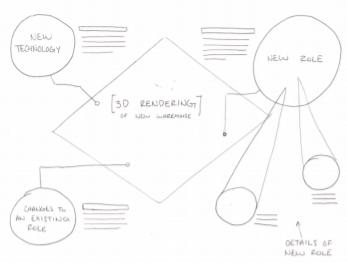 NEW
TECHNOLOGY
NEW ROLE
[3D RENDERING]
OF NEW WAREHOUSE
CHANGES TO
AN EXISTING
ROLE
DETAILS OF
NEW ROLE